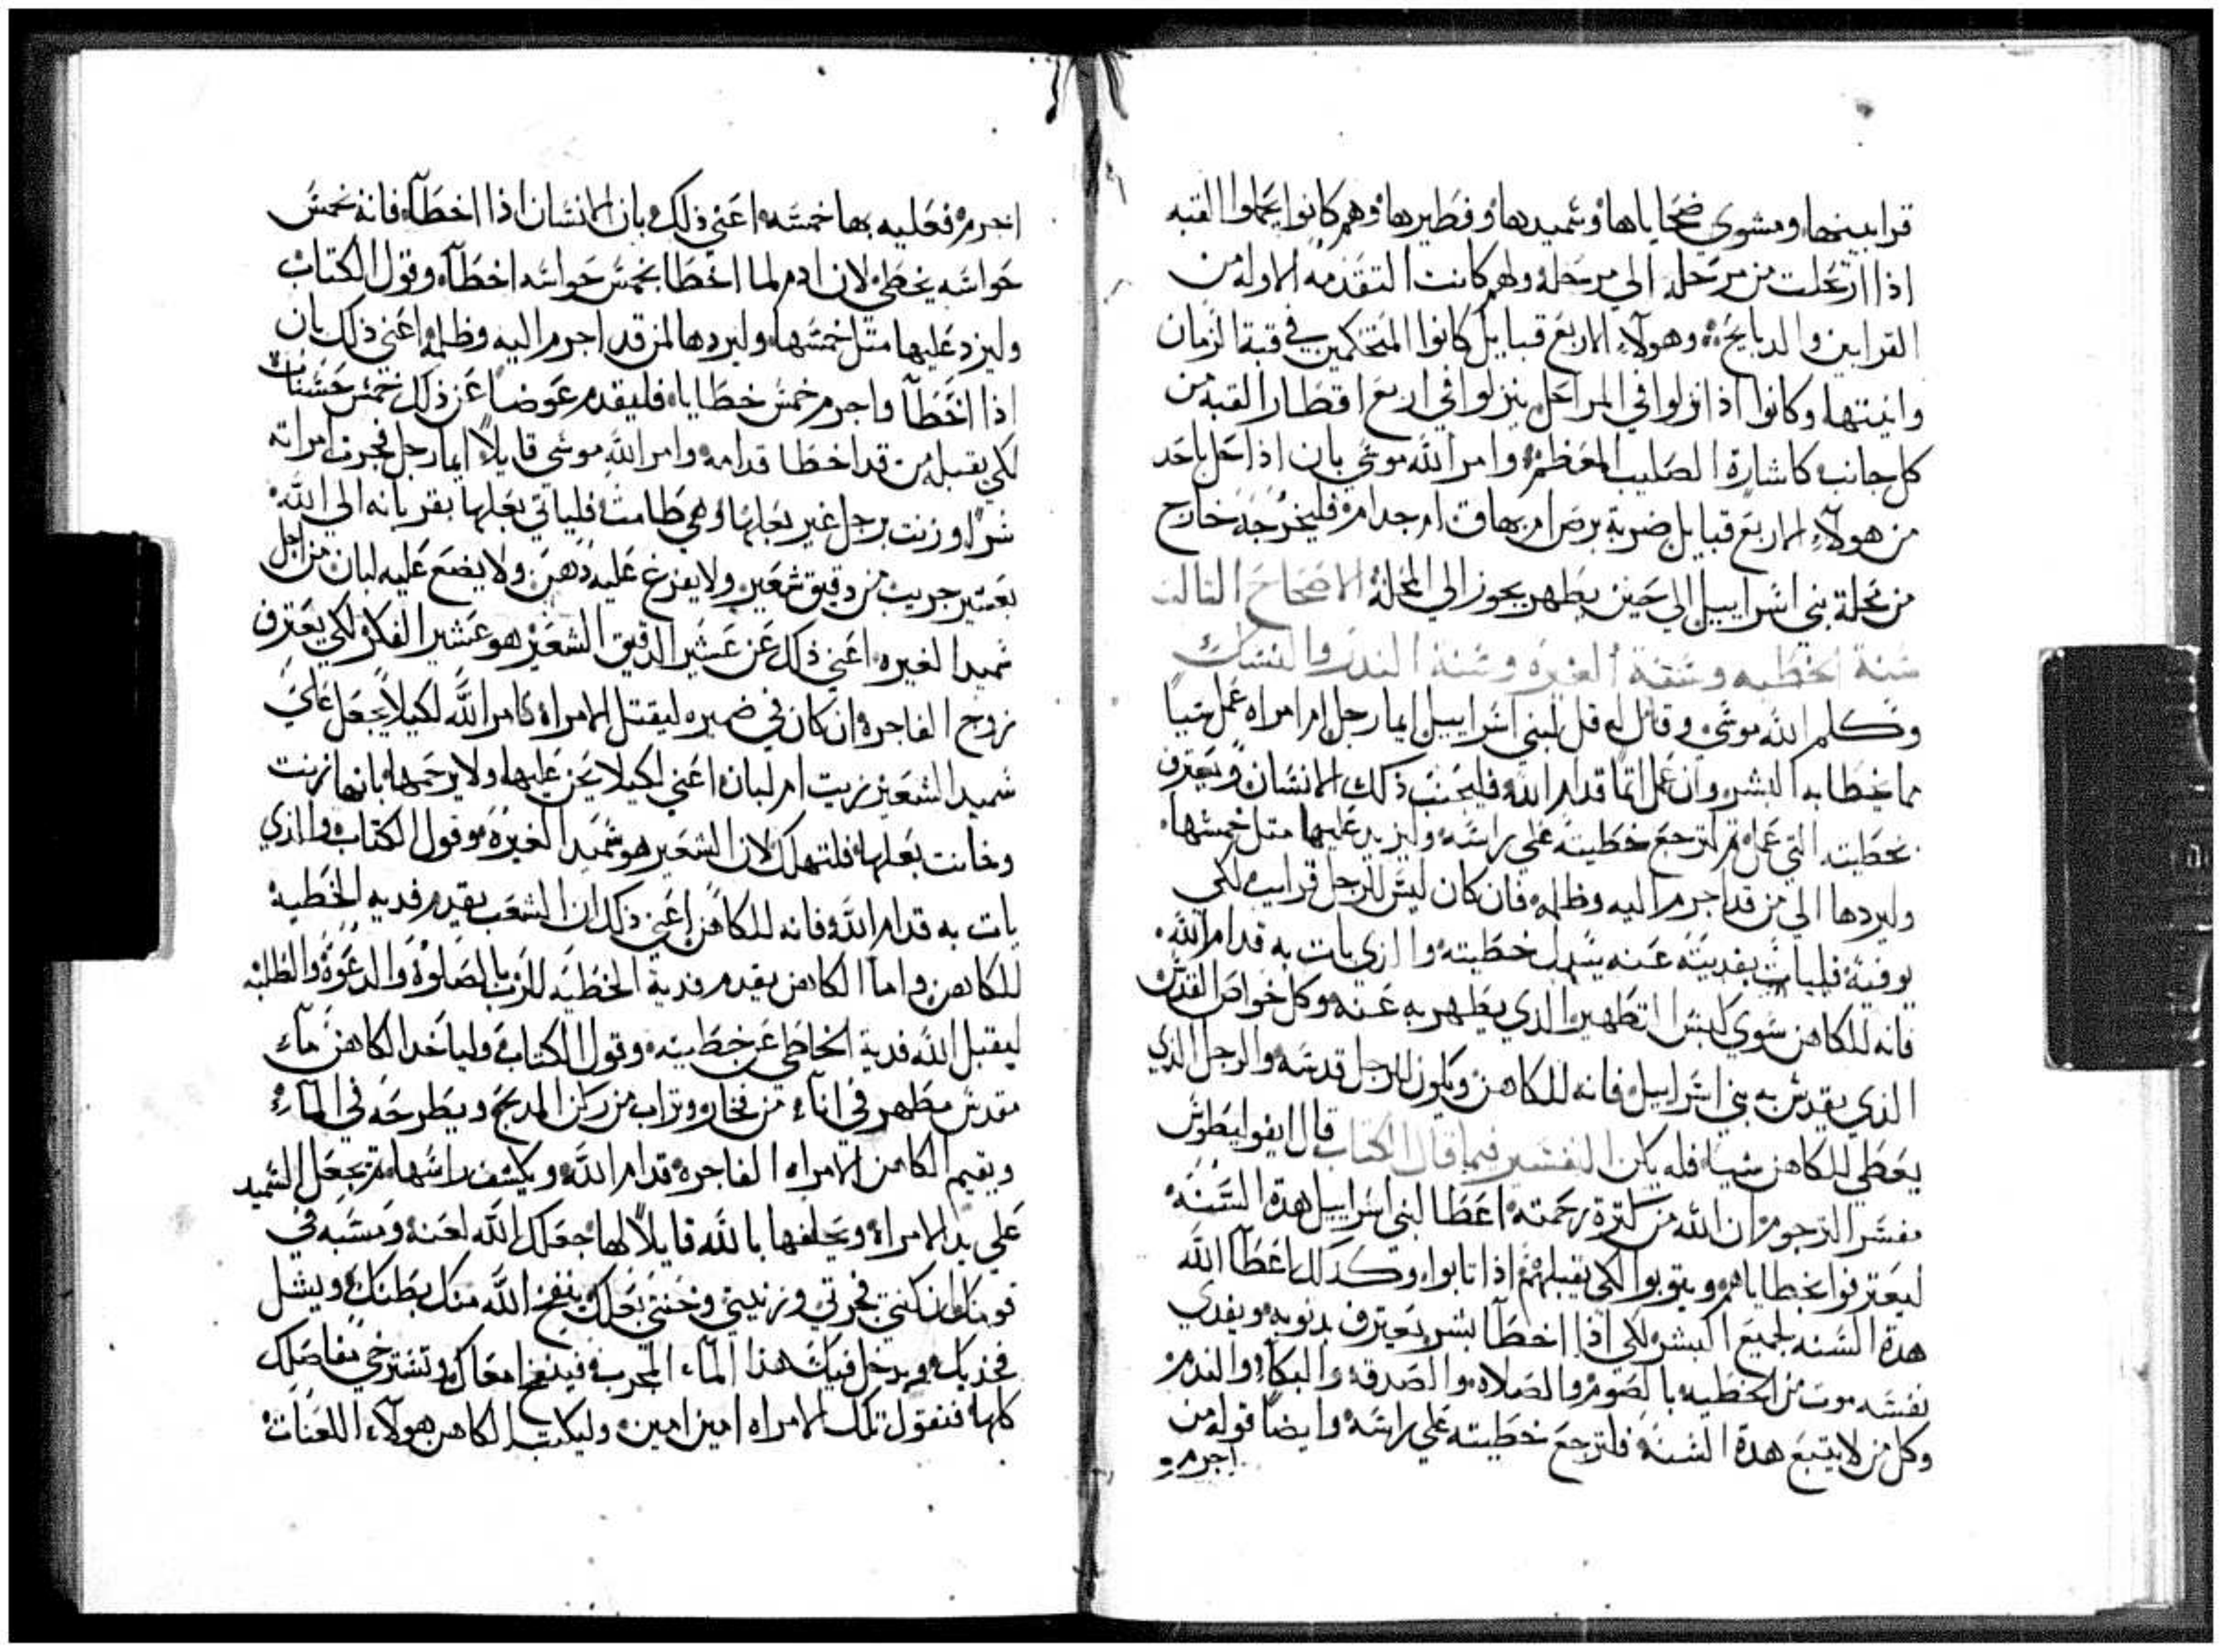 قرابينها ومشوي ضحاياها وسميدها وفطيرها وهم كانوا يحملوا القبه
اذا ارتحلت من مرحله الي مرحلة ولهم كانت التقدمه الاوله من
القرابين والدبايح وهولآء الاربع قبايل كانوا المتحكمين في قبة الزمان
وانيتها وكانوا اذا نزلوا في المراحل ينزلوا في اربع اقطار القبه من
كل جانب كاشارة الصليب المعظم وامر الله موسي بان اذا حل باحد
من هولآء الاربع قبايل ضربة برص ام بهاق ام جدام فليخرجه خارج
من محلة بني اسراييل الي حين يطهر يجوز الي المحلة الاصحاح التالت
سنة الخطيه وسنة الغيره وسنة الندر والنسك
وكلم الله موسي وقال له قل لبني اسراييل ايما رجل ام امراه عمل شيا
مما يخطا به البشر وان عمل اتما قدام الله فليجنب ذلك الانسان ويعترف
بخطيته التي عمل تم لترجع خطيته علي راسه وليزيد عليها متل خمسها
وليردها الي من قد اجرم اليه وظلمه فان كان ليس للرجل قرايب لكي
يوفيه فليات بفديته عنه بتبدل خطيته والذي يات به قدام الله
فانه للكاهن سوي كبش التطهير الذي يطهر به عنه وكل خواص القدس
الذي يقدس به بني اسراييل فانه للكاهن ويكون للرجل قدسه والرجل الذي
يعطي للكاهن شيا فله يكن التفسير فيما قال الكتاب قال ايفوليطوس
مفسر الترجوم ان الله من كترة رحمته اعطا لبني اسراييل هدة السنه
ليعترفوا بخطاياهم ويتوبوا لكي يقبلهم اذا تابوا وكدلك اعطآ الله
هدة السنه لجميع البشر لكي اذا اخطآ بشر يعترف بدنوبه ويفدي
نفسه موت من الخطيه بالصوم والصلاه والصدقه والبكآء والندم
وكل من لا يتبع هدة السنه فلترجع خطيته علي راسه وايضا قوله من
اجرم
اجرم فعليه بها خمسه اعني ذلك بان الانسان اذا اخطآ فانه بخمس
حواسه يخطي لان ادم لما اخطا بخمس حواسه اخطآ وقول الكتاب
وليزد عليها متل خمسها وليردها لمن قد اجرم اليه وظلمه اعني ذلك بان
اذا اخطآ واجرم خمس خطايا فليقدم عوضا عن ذلك خمس حسنات
لكي يقبله من قد اخطا قدامه وامر الله موسي قايلا ايما رجل فجرت امراته
سرا وزنت برجل غير بعلها وهي طامت فلياتي بعلها بقربانه الي الله
بعشير جريب من دقيق شعير ولا يفرغ عليه دهن ولا يضع عليه لبان من اجل
سميد الغيره اعني ذلك عن عشير الدقيق الشعير هو عشير الفكر لكي يعترف
زوج الفاجرة ان كان في ضميره ليقتل الامراة كامر الله لكيلا يجعل علي
سميد الشعير زيت ام لبان اعني لكيلا يحن عليها ولا يرحمها بانها زنت
وخانت بعلها فلتهلك لان الشعير هو سميد الغيره وقول الكتاب والذي
يات به قدام الله فانه للكاهن اعني ذلك ان الشعب يقدم فديه الخطيه
للكاهن واما الكاهن يقدم فدية الخطيه للرب بالصلوة والدعوة والطلبه
ليقبل الله فدية الخاطي عن خطيته وقول الكتاب ولياخد الكاهن مآء
مقدس مطهر في انآء من فخار وتراب من ركن المدبح ويطرحه في المآء
ويقيم الكاهن الامراه الفاجرة قدام الله ويكشف راسها تم يجعل السميد
علي يد الامراة ويحلفها بالله قايلا لها جعلك الله لعنة ومسبه في
قومك ان كنتي فجرتي وزنيتي وخنتي بعلك ينفخ الله منك بطنك ويشل
فخديك ويدخل فيك هذا المآء المجرب فينفخ امعاك وتسترخي مفاصلك
كلها فتقول تلك الامراه امين امين وليكتب الكاهن هولآء اللعنات